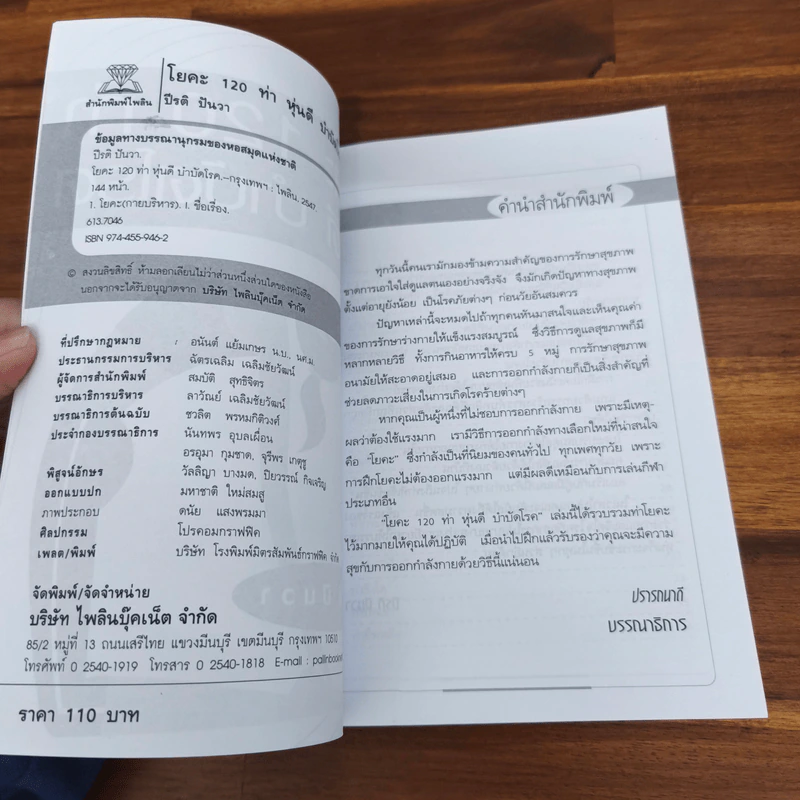 สำนักพิมพ์ไพลิน
โยคะ 120 ท่า หุ่นดี
ปีรติ ปันวา
ข้อมูลทางบรรณานุกรมของหอสมุดแห่งชาติ
ปีรติ ปันวา.
โยคะ 120 ท่า หุ่นดี บำบัดโรค.--กรุงเทพฯ : ไพลิน, 2547.
144 หน้า.
1. โยคะ(กายบริหาร). I. ชื่อเรื่อง.
613.7046
ISBN 974-455-946-2
© สงวนลิขสิทธิ์ ห้ามลอกเลียนไม่ว่าส่วนหนึ่งส่วนใดของหนังสือ
นอกจากจะได้รับอนุญาตจาก บริษัท ไพลินบุ๊คเน็ต จำกัด
ที่ปรึกษากฎหมาย : อนันต์ แย้มเกษร น.บ., นศ.ม.
ประธานกรรมการบริหาร ฉัตรเฉลิม เฉลิมชัยวัฒน์
ผู้จัดการสำนักพิมพ์ สมบัติ สุทธิจิตร
บรรณาธิการบริหาร ลาวัณย์ เฉลิมชัยวัฒน์
บรรณาธิการต้นฉบับ ชวลิต พรหมกิติวงศ์
ประจำกองบรรณาธิการ นันทพร อุบลเผื่อน
อรอุมา กุมชาด, จุรีพร เกตุชู
พิสูจน์อักษร วัลลิญา บางมด, ปิยวรรณ์ กิจเจริญ
ออกแบบปก มหาชาติ ใหม่สมสู
ภาพประกอบ ดนัย แสงพรมมา
ศิลปกรรม โปรคอมกราฟฟิค
เพลต/พิมพ์ บริษัท โรงพิมพ์มิตรสัมพันธ์กราฟฟิค จำกัด
จัดพิมพ์/จัดจำหน่าย
บริษัท ไพลินบุ๊คเน็ต จำกัด
85/2 หมู่ที่ 13 ถนนเสรีไทย แขวงมีนบุรี เขตมีนบุรี กรุงเทพฯ 10510
โทรศัพท์ 0 2540-1919 โทรสาร 0 2540-1818 E-mail :
ราคา 110 บาท
คำนำสำนักพิมพ์
ทุกวันนี้คนเรามักมองข้ามความสำคัญของการรักษาสุขภาพ
ขาดการเอาใจใส่ดูแลตนเองอย่างจริงจัง จึงมักเกิดปัญหาทางสุขภาพ
ตั้งแต่อายุยังน้อย เป็นโรคภัยต่างๆ ก่อนวัยอันสมควร
ปัญหาเหล่านี้จะหมดไปถ้าทุกคนหันมาสนใจและเห็นคุณค่า
ของการรักษาร่างกายให้แข็งแรงสมบูรณ์ ซึ่งวิธีการดูแลสุขภาพก็มี
หลากหลายวิธี ทั้งการกินอาหารให้ครบ 5 หมู่ การรักษาสุขภาพ
อนามัยให้สะอาดอยู่เสมอ และการออกกำลังกายก็เป็นสิ่งสำคัญที่
ช่วยลดภาวะเสี่ยงในการเกิดโรคร้ายต่างๆ
หากคุณเป็นผู้หนึ่งที่ไม่ชอบการออกกำลังกาย เพราะมีเหตุ-
ผลว่าต้องใช้แรงมาก เรามีวิธีการออกกำลังทางเลือกใหม่ที่น่าสนใจ
คือ "โยคะ" ซึ่งกำลังเป็นที่นิยมของคนทั่วไป ทุกเพศทุกวัย เพราะ
การฝึกโยคะไม่ต้องออกแรงมาก แต่มีผลดีเหมือนกับการเล่นกีฬา
ประเภทอื่น
"โยคะ 120 ท่า หุ่นดี บำบัดโรค" เล่มนี้ได้รวบรวมท่าโยคะ
ไว้มากมายให้คุณได้ปฏิบัติ เมื่อนำไปฝึกแล้วรับรองว่าคุณจะมีความ
สุขกับการออกกำลังกายด้วยวิธีนี้แน่นอน
ปรารถนาดี
บรรณาธิการ